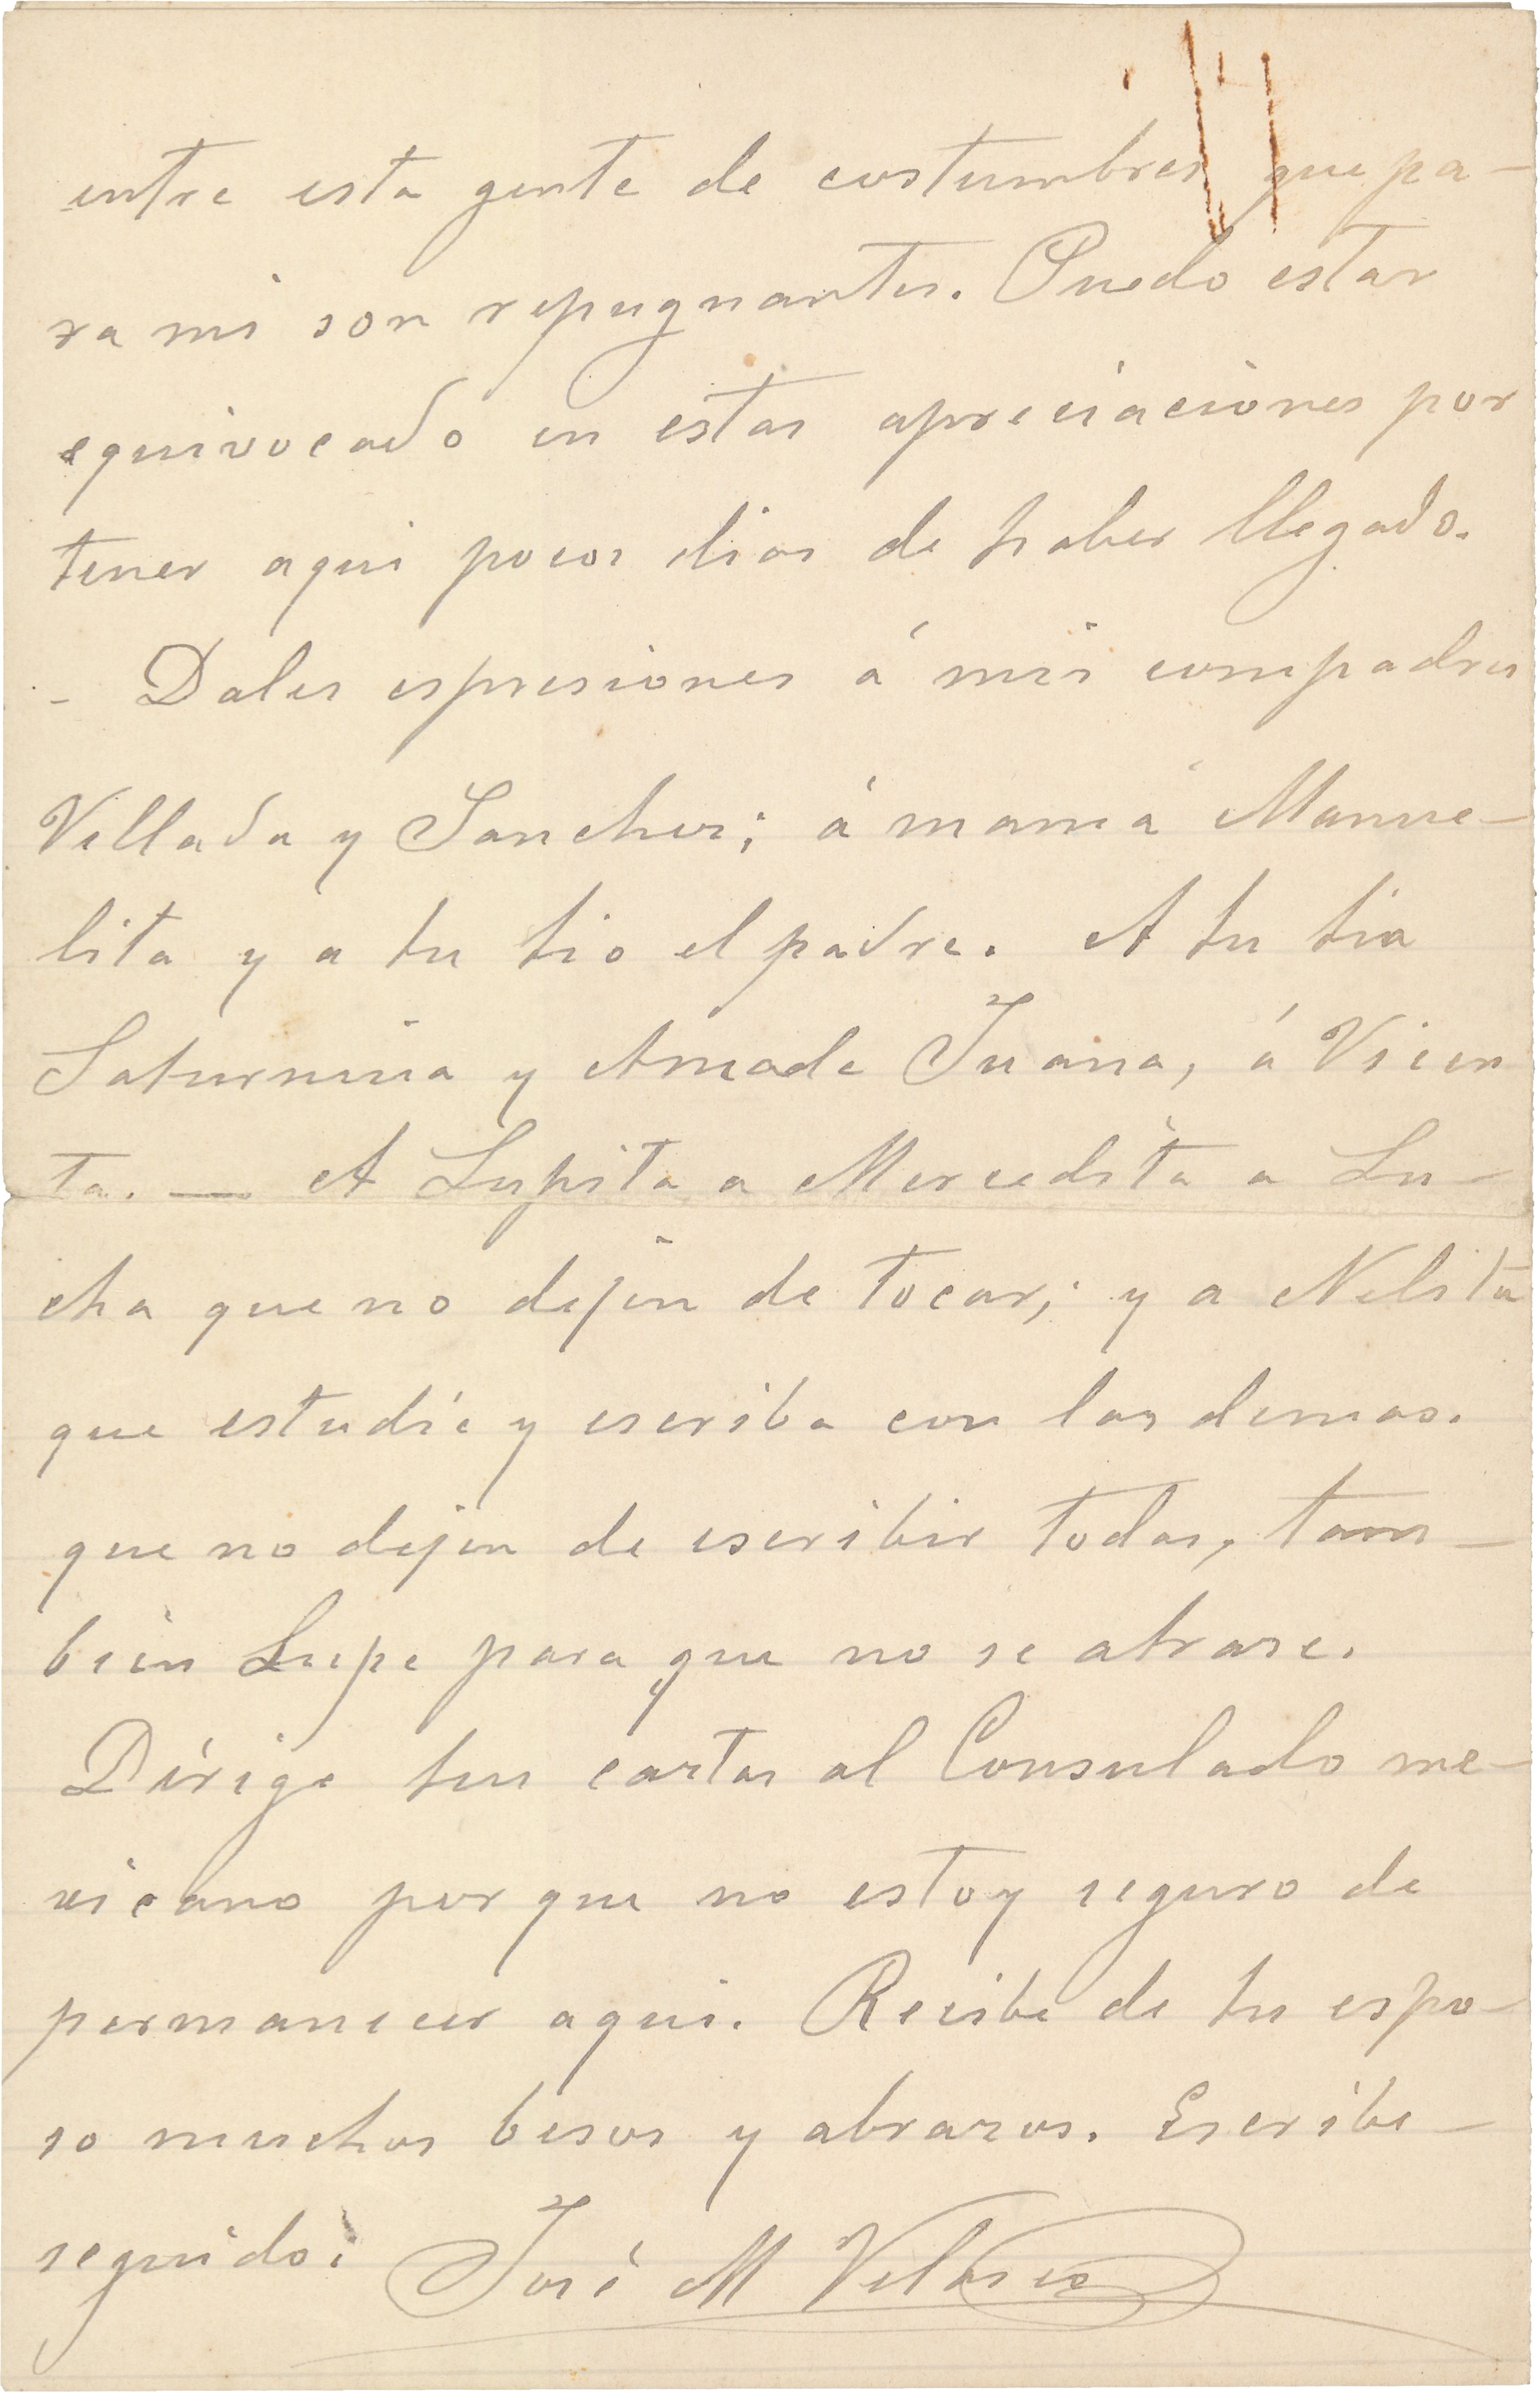 entre esta gente de costumbres que pa-
ra mi son repugnantes. Puedo estar
equivocado en estas apreciaciones por
tener aqui pocos dias de haber llegado.
- Dales espresiones á mis compadres
Villada y Sanchez; á mamá Manue-
lita y a tu tio el padre. A tu tia
Saturnina y Amada Juana, á Vicen
ta. — A Lupita a Mercedita a Lu-
cha que no dejen de tocar; y a Nelita
que estudie y escriba con las demas.
que no dejen de escribir todas, tam-
bien Lupe para que no se atrase.
Dirige tus cartas al Consulado me-
xicano por que no estoy seguro de
permanecer aqui. Recibe de tu espo-
so muchos besos y abrazos. Escribe-
seguido. José M Velasco